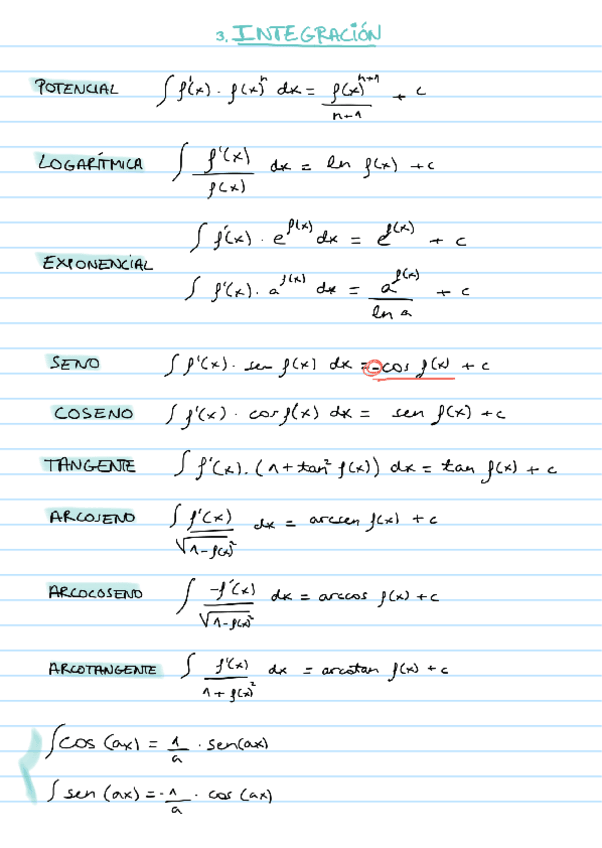 3. INTEGRACIÓN
POTENCIAL ∫ f'(x) · f(x)^n dx = f(x)^(n+1) / (n+1) + c
LOGARÍTMICA ∫ f'(x) / f(x) dx = ln f(x) + c
∫ f'(x) · e^f(x) dx = e^f(x) + c
EXPONENCIAL
∫ f'(x) · a^f(x) dx = a^f(x) / ln a + c
SENO ∫ f'(x) · sen f(x) dx = -cos f(x) + c
COSENO ∫ f'(x) · cos f(x) dx = sen f(x) + c
TANGENTE ∫ f'(x) · (1 + tan² f(x)) dx = tan f(x) + c
ARCOSENO ∫ f'(x) / √(1 - f(x)²) dx = arcsen f(x) + c
ARCOCOSENO ∫ -f'(x) / √(1 - f(x)²) dx = arccos f(x) + c
ARCOTANGENTE ∫ f'(x) / (1 + f(x)²) dx = arcotan f(x) + c
∫ cos (ax) = 1/a · sen(ax)
∫ sen (ax) = -1/a · cos (ax)